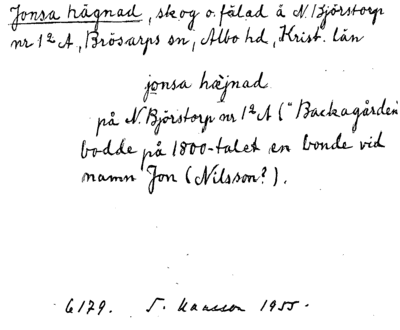 Jonsa hägnad, skog o. fälad å N. Björstorp
nr 1² A, Brösarps sn, Albo hd, Krist. län
jonsa hæjnad
på N. Björstorp nr 1² A ("Backagården
bodde på 1800-talet en bonde vid
namn Jon (Nilsson?).
6179. 1955.